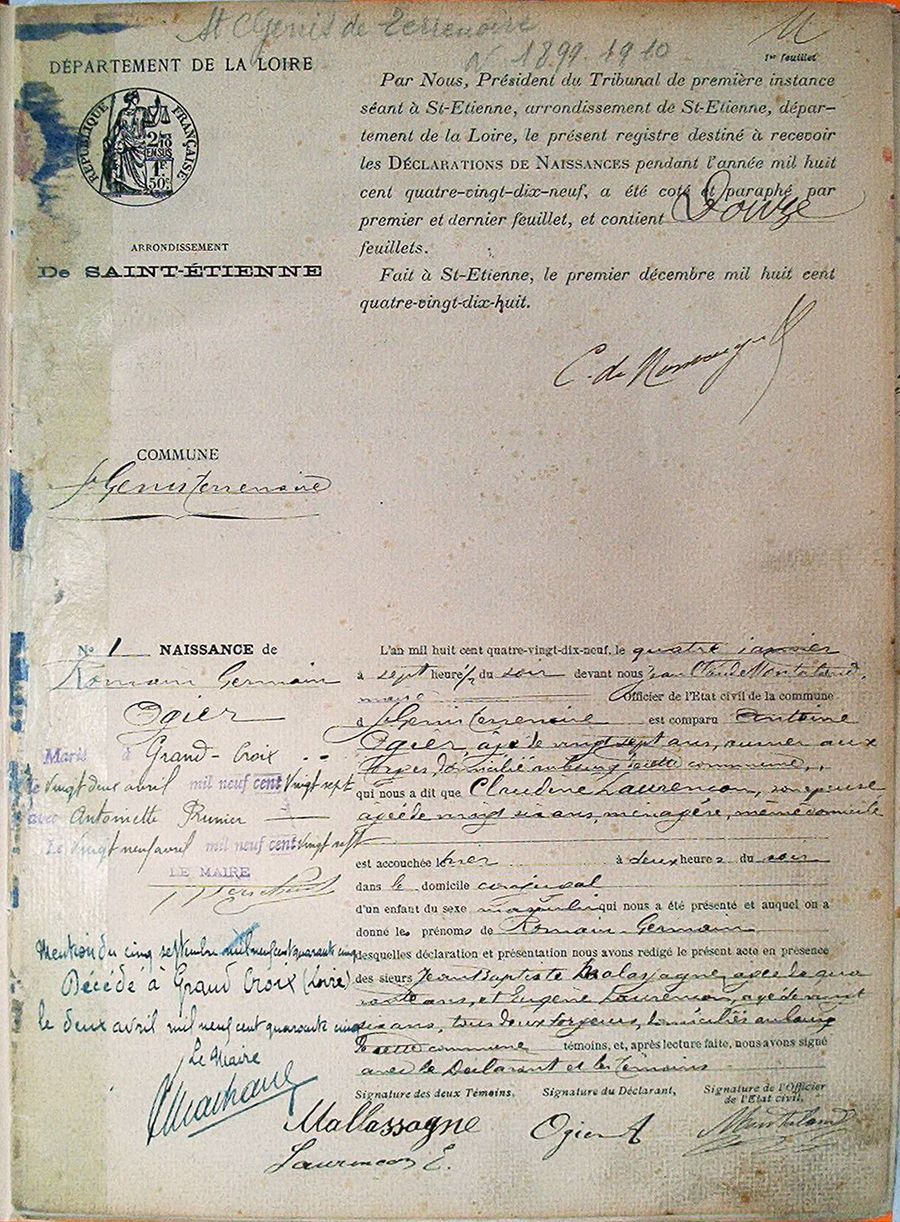 St Genis de Terrenoire
N 1899-1910
1er feuillet
DÉPARTEMENT DE LA LOIRE
RÉPUBLIQUE FRANÇAISE
2/10
EN SUS
1F
50c
ARRONDISSEMENT
De SAINT-ÉTIENNE
Par Nous, Président du Tribunal de première instance
séant à St-Etienne, arrondissement de St-Etienne, dépar-
tement de la Loire, le présent registre destiné à recevoir
les DÉCLARATIONS DE NAISSANCES pendant l'année mil huit
cent quatre-vingt-dix-neuf, a été coté et paraphé par
premier et dernier feuillet, et contient Douze
feuillets.
Fait à St-Etienne, le premier décembre mil huit cent
quatre-vingt-dix-huit.
C. de
COMMUNE
St Genis terrenoire
No 1 NAISSANCE de
Romain Germain
Ogier
Marié à Grand-Croix
le vingt deux avril mil neuf cent vingt sept
avec Antoinette Prunier
Le vingt neuf avril mil neuf cent vingt sept
LE MAIRE
Mention du cinq septembre mil neuf cent quarante cinq
Décédé à Grand Croix (Loire)
le deux avril mil neuf cent quarante cinq
Le Maire
L'an mil huit cent quatre-vingt-dix-neuf, le quatre janvier
à sept heure 1/2 du soir devant nous Jean Claude Montaland
maire Officier de l'Etat civil de la commune
à St Genis terrenoire est comparu Antoine
Ogier âgé de vingt sept ans, ouvrier aux
forges, domicilié au bourg de cette commune,
qui nous a dit que Claudine Laurençon, son epouse
agée de vingt six ans, ménagère, même domicile
est accouchée hier à deux heures du soir
dans le domicile conjugal
d'un enfant du sexe masculin qui nous a été présenté et auquel on a
donné les prénoms de Romain Germain
desquelles déclaration et présentation nous avons rédigé le présent acte en présence
des sieurs Jean Baptiste Malassagne, agé de qua
rante ans, et Eugène Laurençon, agé de vingt
six ans, tous deux forgeurs, domiciliés au bourg
de cette commune témoins, et, après lecture faite, nous avons signé
avec le Déclarant et les témoins
Signature des deux Témoins, Signature du Déclarant, Signature de l'Officier
de l'Etat civil,
Mallassagne Ogier A Montaland
Laurençon E.